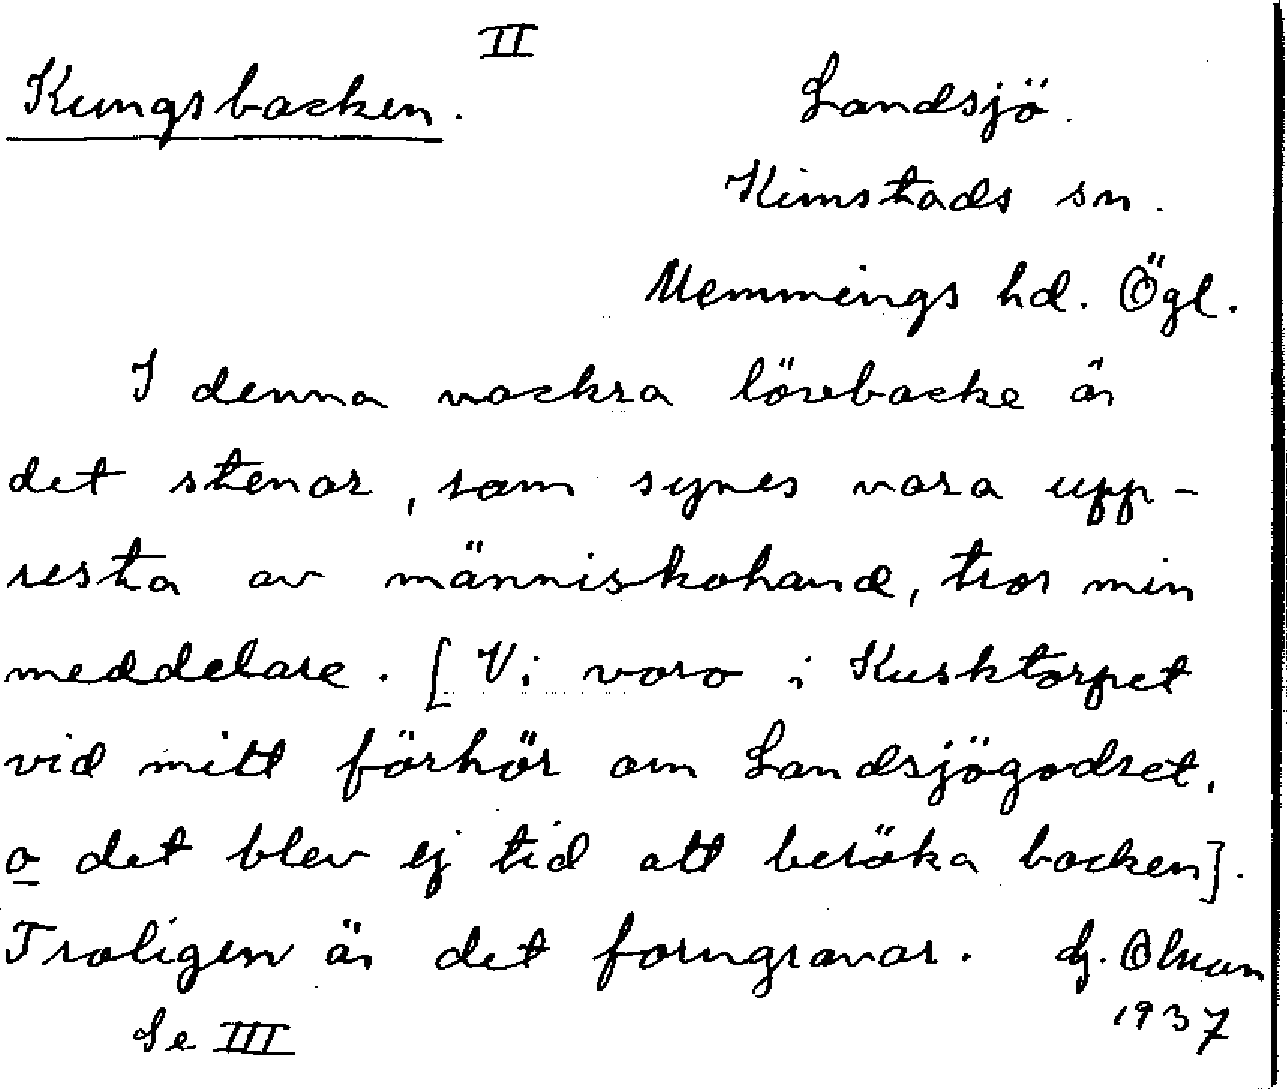 II
Kungsbacken. Landsjö.
Kimstads sn.
Memmings hd. Ögl.
I denna vackra lövebacke är
det stenar, som synes vara upp-
resta av människohand, tror min
meddelare. [Vi voro i Kusktorpet
vid mitt förhör om Landsjögodset,
o det blev ej tid att besöka backen].
Troligen är det forngravar. Hj. Olman
1937
Se III